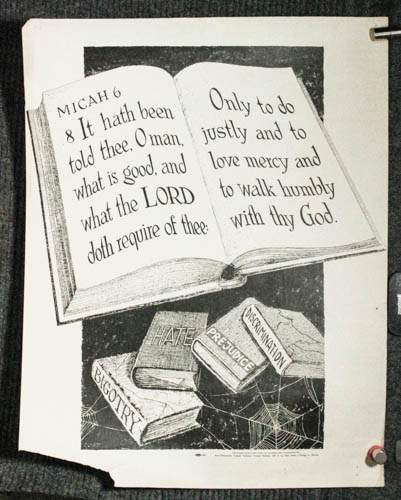 MICAH 6
8 It hath been
told thee, O man,
what is good, and
what the LORD
doth require of thee:
Only to do
justly and to
love mercy and
to walk humbly
with thy God.
HATE
PREJUDICE
DISCRIMINATION
BIGOTRY